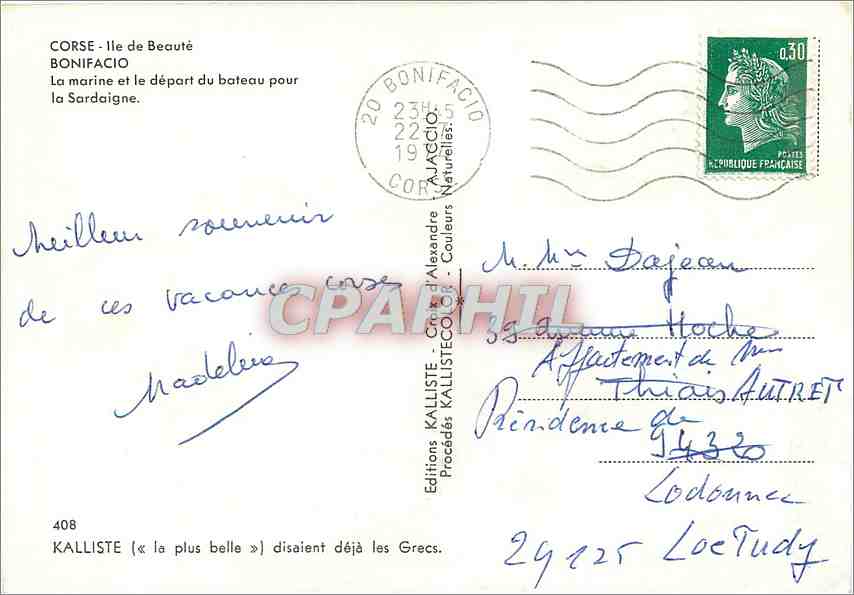 CORSE - Ile de Beauté
BONIFACIO
La marine et le départ du bateau pour
la Sardaigne.
20 BONIFACIO
23H45
22
19
CORSE
0,30
POSTES
REPUBLIQUE FRANÇAISE
Meilleur souvenir
de ces vacances corses
Madeleine
CPARPHIL
Editions KALLISTE - Croix d'Alexandre - AJACCIO
Procédés KALLISTECOLOR - Couleurs Naturelles.
M. Mme Dajean
39 avenue Hoche
Appartement de Mme
Thiais AUTRET
Résidence de
94320
Lodonnec
29125 Loctudy
408
KALLISTE (« la plus belle ») disaient déjà les Grecs.